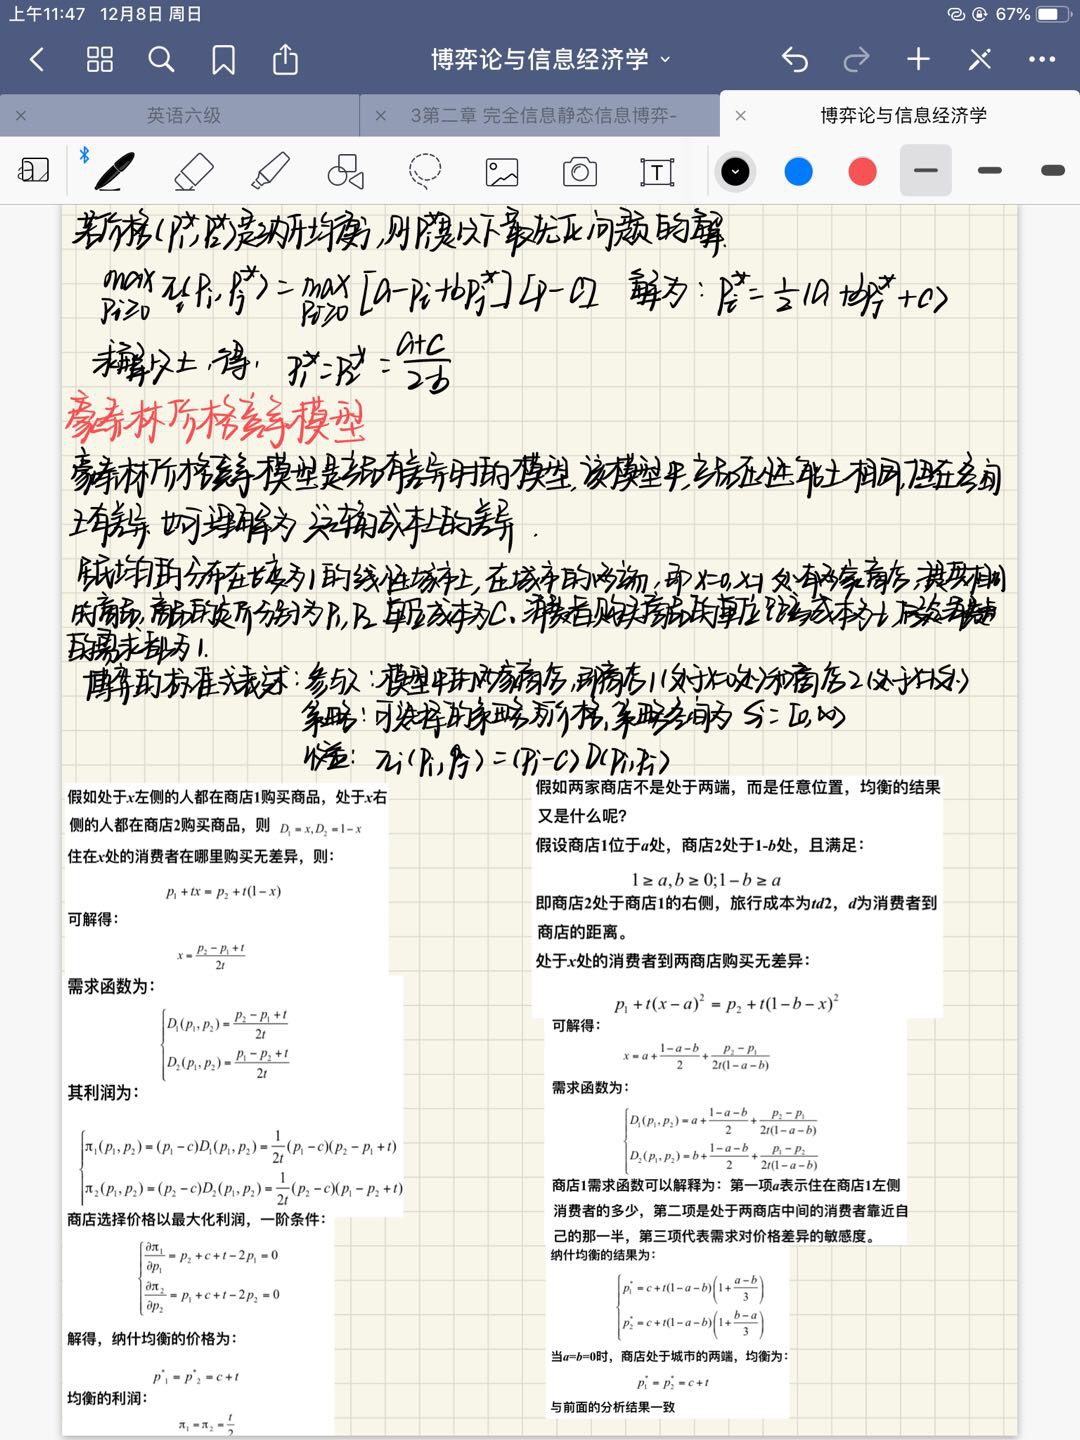 上午11:47 12月8日 周日
67%
博弈论与信息经济学
英语六级
3第二章 完全信息静态信息博弈-
博弈论与信息经济学
若价格(P₁*,P₂*)是纳什均衡,则P*是以下最优化问题的解.
max Pi≥0 πi(Pi,Pj*) = max Pi≥0 [a-Pi+bPj*][P-C] 解为: Pi* = 1/2(a+bPj*+c)
求解以上,得, P₁*=P₂* = (a+c)/(2-b)
豪泰林价格竞争模型
豪泰林价格竞争模型是产品有差异时的模型,该模型中,产品在性能上相同,但在空间
上有差异.也可理解为运输成本上的差异.
居民均匀的分布在长度为1的线性城市上,在城市的两端,即x=0,x=1处有两家商店,
的需求都为1.
博弈的标准式表述:参与人:模型中的两家商店,即商店1(处于x=0处)和商店2(处于x=1处)
策略:可选择的策略为价格,策略空间为 Si=[0,∞)
收益: πi(Pi,Pj)=(Pi-c)D(Pi,Pj)
假如处于x左侧的人都在商店1购买商品，处于x右
侧的人都在商店2购买商品，则 D₁=x,D₂=1-x
住在x处的消费者在哪里购买无差异，则：
p₁+tx=p₂+t(1-x)
可解得：
x=(p₂-p₁+t)/2t
需求函数为：
D₁(p₁,p₂)=(p₂-p₁+t)/2t
D₂(p₁,p₂)=(p₁-p₂+t)/2t
其利润为：
π₁(p₁,p₂)=(p₁-c)D₁(p₁,p₂)=1/2t(p₁-c)(p₂-p₁+t)
π₂(p₁,p₂)=(p₂-c)D₂(p₁,p₂)=1/2t(p₂-c)(p₁-p₂+t)
商店选择价格以最大化利润，一阶条件：
∂π₁/∂p₁=p₂+c+t-2p₁=0
∂π₂/∂p₂=p₁+c+t-2p₂=0
解得，纳什均衡的价格为：
p*₁=p*₂=c+t
均衡的利润：
π₁=π₂=t/2
假如两家商店不是处于两端，而是任意位置，均衡的结果
又是什么呢？
假设商店1位于a处，商店2处于1-b处，且满足：
1≥a,b≥0;1-b≥a
即商店2处于商店1的右侧，旅行成本为td2，d为消费者到
商店的距离。
处于x处的消费者到两商店购买无差异：
p₁+t(x-a)²=p₂+t(1-b-x)²
可解得：
x=a+(1-a-b)/2+(p₂-p₁)/2t(1-a-b)
需求函数为：
D₁(p₁,p₂)=a+(1-a-b)/2+(p₂-p₁)/2t(1-a-b)
D₂(p₁,p₂)=b+(1-a-b)/2+(p₁-p₂)/2t(1-a-b)
商店1需求函数可以解释为：第一项a表示住在商店1左侧
消费者的多少，第二项是处于两商店中间的消费者靠近自
己的那一半，第三项代表需求对价格差异的敏感度。
纳什均衡的结果为：
p₁*=c+t(1-a-b)(1+(a-b)/3)
p₂*=c+t(1-a-b)(1+(b-a)/3)
当a=b=0时，商店处于城市的两端，均衡为：
p₁*=p₂*=c+t
与前面的分析结果一致